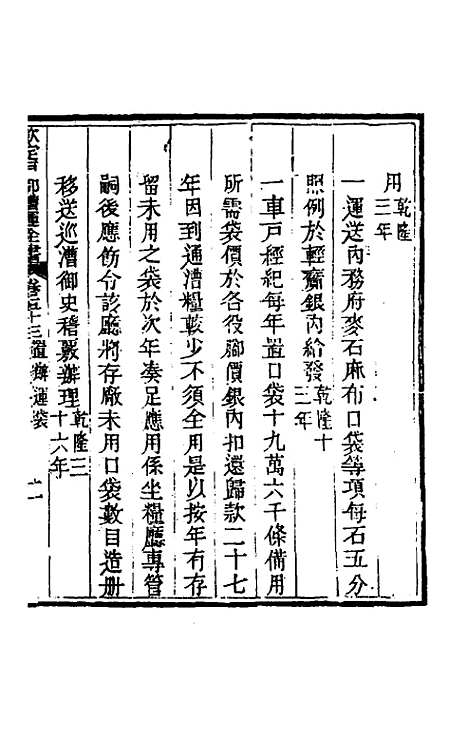 用乾隆三年
一運送內務府麥石麻布口袋等項每石五分
照例於輕齎銀內給發乾隆十三年
一車戶經紀每年置口袋十九萬六千條備用
所需袋價於各役腳價銀內扣還歸款二十七
年因到通漕糧較少不須全用是以按年有存
留未用之袋於次年湊足應用係坐糧廳專管
嗣後應飭令該廳將存廠未用口袋數目造册
移送巡漕御史稽覈辦理乾隆三十六年
欽定戶部漕運全書卷五十三置辦運袋